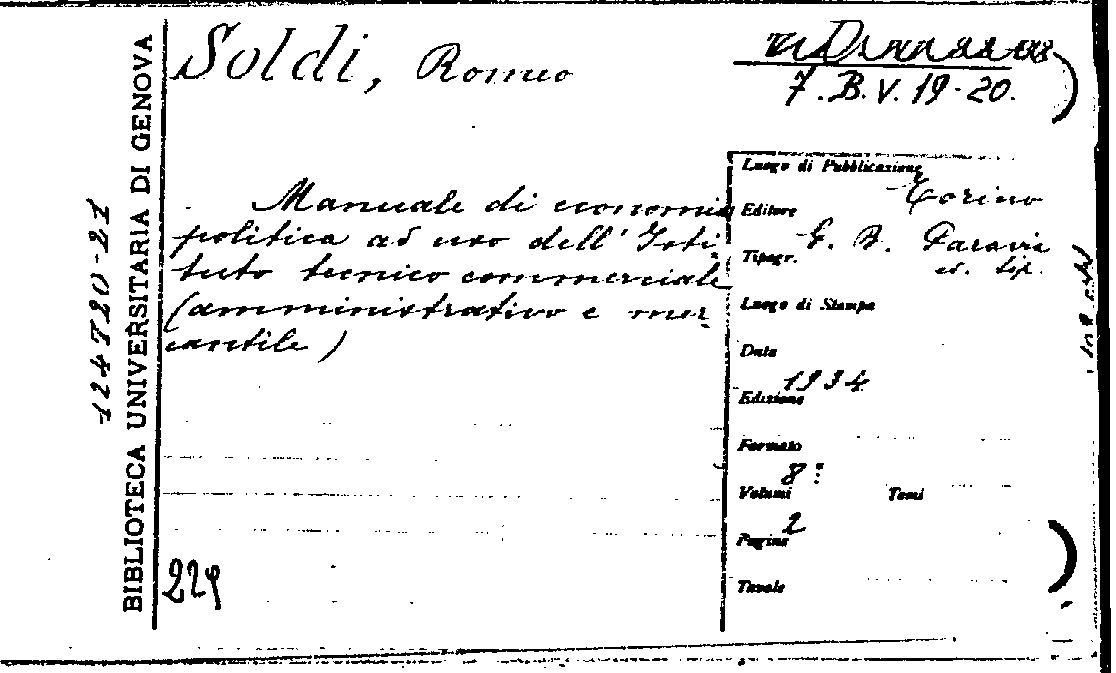 Soldi, Romeo
7. B. V. 19-20.
BIBLIOTECA UNIVERSITARIA DI GENOVA
124720-21
Manuale di economia
politica ad uso dell' Isti-
tuto tecnico commerciale
(amministrativo e mer-
cantile)
Luogo di Pubblicazione
Torino
Editore
G. B. Paravia
ed. tip.
Tipogr.
Luogo di Stampa
Data
1934
Edizione
Formato
8º
Volumi Tomi
2
Pagine
Tavole
229